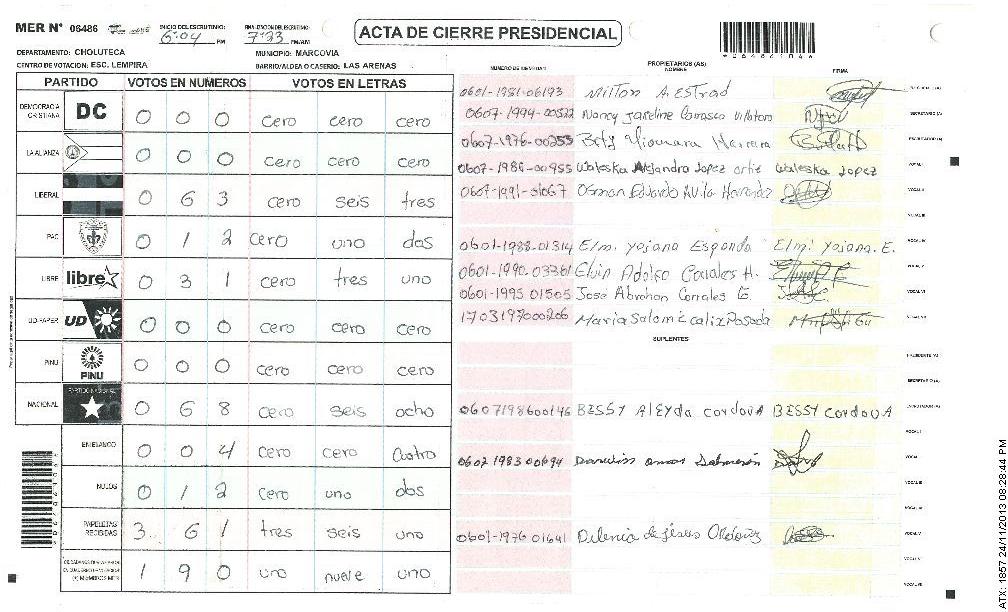 MER Nº 06486 INICIO DEL ESCRUTINIO: 6:04 PM FINALIZACION DEL ESCRUTINIO: 7:23 PM/AM ACTA DE CIERRE PRESIDENCIAL
DEPARTAMENTO: CHOLUTECA MUNICIPIO: MARCOVIA
CENTRO DE VOTACION: ESC. LEMPIRA BARRIO/ALDEA O CASERIO: LAS ARENAS
PARTIDO VOTOS EN NUMEROS VOTOS EN LETRAS
DEMOCRACIA CRISTIANA DC 0 0 0 cero cero cero
LA ALIANZA 0 0 0 cero cero cero
LIBERAL 0 6 3 cero seis tres
PAC 0 1 2 cero uno dos
LIBRE libre 0 3 1 cero tres uno
UD-FAPER UD 0 0 0 cero cero cero
PINU PINU 0 0 0 cero cero cero
NACIONAL PARTIDO NACIONAL 0 6 8 cero seis ocho
EN BLANCO 0 0 4 cero cero cuatro
NULOS 0 1 2 cero uno dos
PAPELETAS RECIBIDAS 3 6 1 tres seis uno
1 9 0 uno nueve uno
NUMERO DE IDENTIDAD PROPIETARIOS (AS) NOMBRE FIRMA
0601-1981-06193 Milton A Estrad
0607-1994-00522 Nancy Janeline Carrasco Villatoro SECRETARIO (A)
0607-1976-00253 Herrera ESCRUTADOR (A)
0607-1986-00955 Waleska Alejandra Lopez ortiz Waleska Lopez VOCAL I
0607-1991-01067 Osman Eduardo Avila Hernandez VOCAL II
VOCAL III
0601-1988-01314 Elmi Yojana Espanda Elmi Yojana. E. VOCAL IV
0601-1990-03361 Elvin Adolfo Corrales H. VOCAL V
0601-1995 01505 José Abrahan Corrales G VOCAL VI
1703197000206 Maria Salome calix Posada
SUPLENTES
PRESIDENTE (A)
SECRETARIO (A)
0607198600146 BESSY AlEyda CordovA BESSY CordovA ESCRUTADOR (A)
VOCAL I
0607 1983 00694 Darwin omar VOCAL II
VOCAL III
VOCAL IV
0601-1976 01641 de Jesus VOCAL V
VOCAL VI
VOCAL VII
ATX: 1857 24/11/2013 08:28:44 PM